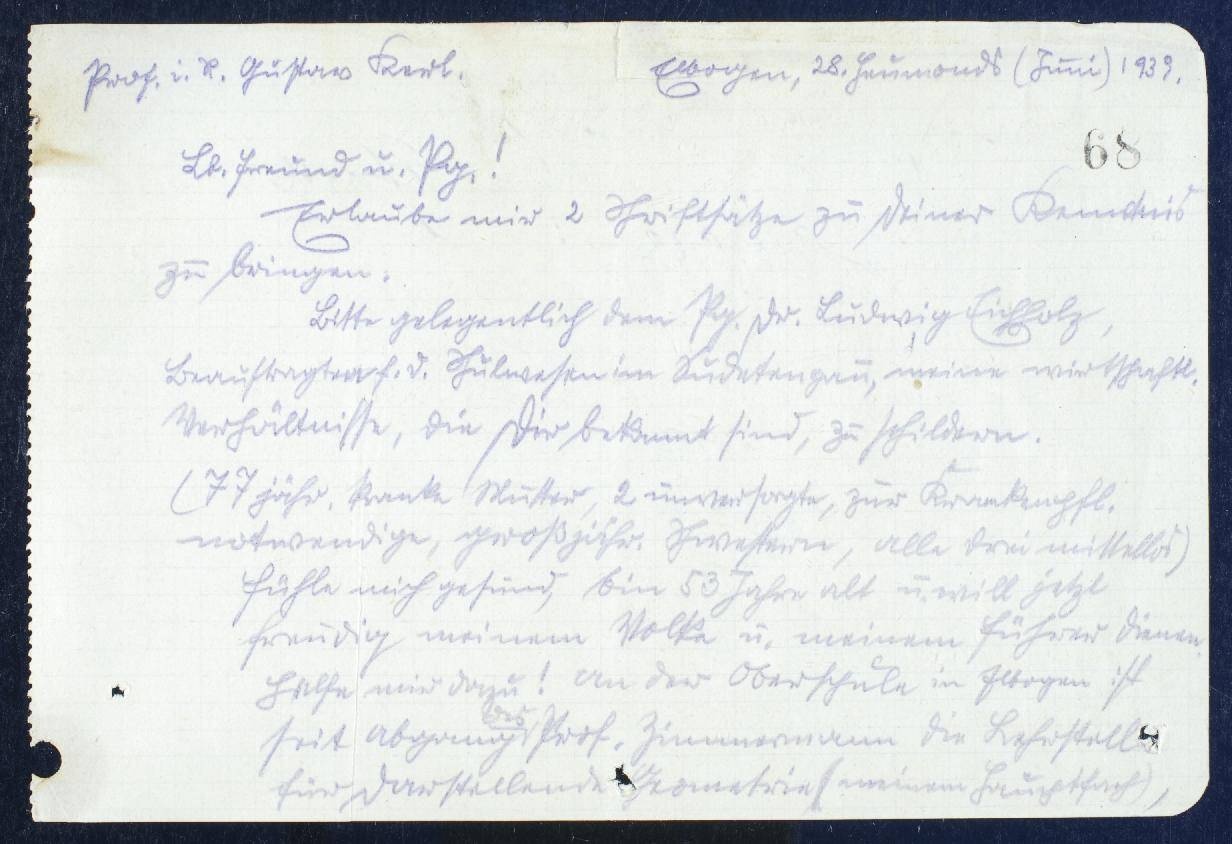 Prof. i. R. Gustav Kerl.
Elbogen, 28. Heumonds (Juni) 1939.
68
Lb. Freund u. Pg.!
Erlaube mir 2 Schriftsätze zu Deiner Kenntnis
zu bringen.
Bitte gelegentlich dem Pg. Dr. Ludwig Eichholz,
Beauftragten f. d. Schulwesen im Sudetengau, meine wirtschaftl.
Verhältnisse, die Dir bekannt sind, zu schildern.
(77 jähr. kranke Mutter, 2 unversorgte, zur Krankenpfl.
notwendige, großjähr. Schwestern, alle drei mittellos)
Fühle mich gesund, bin 53 Jahre alt u. will jetzt
freudig meinem Volke u. meinem Führer dienen.
Helfe mir dazu! An der Oberschule in Elbogen ist
seit Abgang des Prof. Zimmermann die Lehrstelle
für Darstellende Geometrie (meinem Hauptfach),